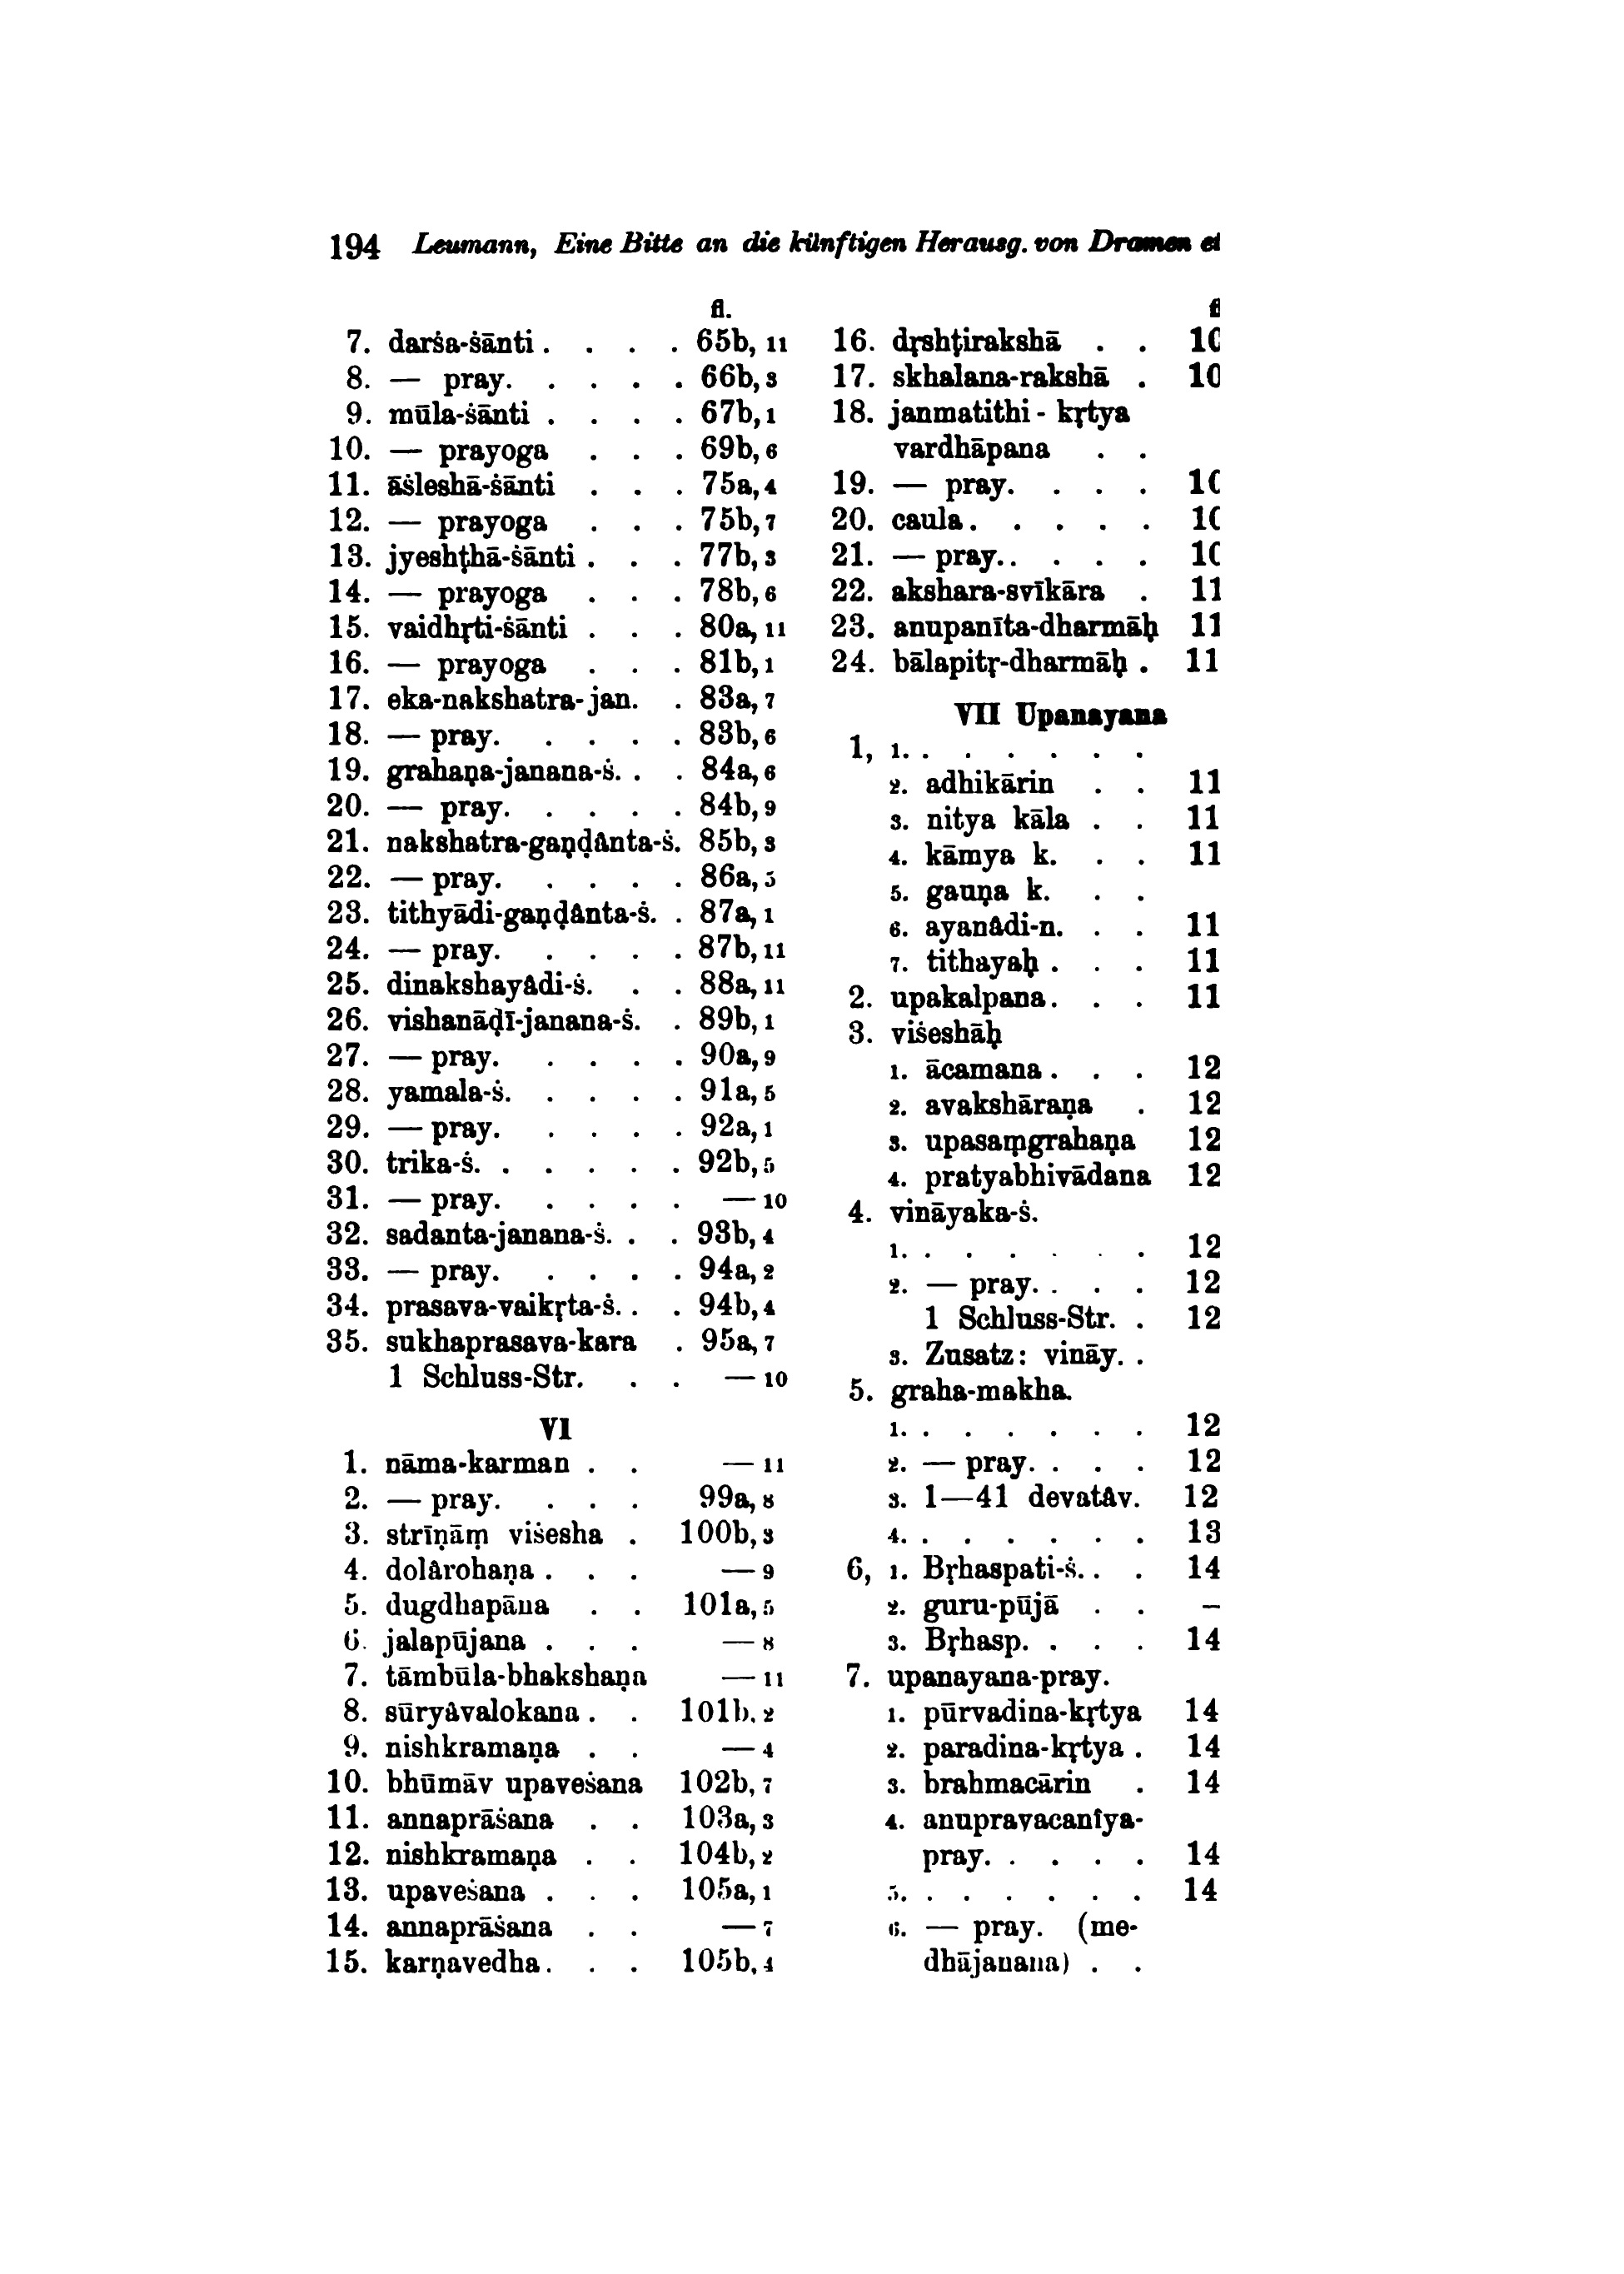 194 Leumann, Eine Bitte an die künftigen Herausg. von Dramen et
fl.
7. darṡa-ṡānti . . . . 65b, 11
8. — pray. . . . . 66b, 3
9. mūla-ṡānti . . . . 67b, 1
10. — prayoga . . . 69b, 6
11. āṡleshā-ṡānti . . . 75a, 4
12. — prayoga . . . 75b, 7
13. jyeshṭhā-ṡānti . . . 77b, 3
14. — prayoga . . . 78b, 6
15. vaidhṛti-ṡānti . . . 80a, 11
16. — prayoga . . . 81b, 1
17. eka-nakshatra-jan. . 83a, 7
18. — pray. . . . . 83b, 6
19. grahaṇa-janana-ṡ. . . 84a, 6
20. — pray. . . . . 84b, 9
21. nakshatra-gaṇḍânta-ṡ. 85b, 3
22. — pray. . . . . 86a, 5
23. tithyādi-gaṇḍânta-ṡ. . 87a, 1
24. — pray. . . . . 87b, 11
25. dinakshayâdi-ṡ. . . 88a, 11
26. vishanāḍī-janana-ṡ. . 89b, 1
27. — pray. . . . . 90a, 9
28. yamala-ṡ. . . . . 91a, 5
29. — pray. . . . . 92a, 1
30. trika-ṡ. . . . . . 92b, 5
31. — pray. . . . . — 10
32. sadanta-janana-ṡ. . . 93b, 4
33. — pray. . . . . 94a, 2
34. prasava-vaikṛta-ṡ. . . 94b, 4
35. sukhaprasava-kara . 95a, 7
1 Schluss-Str. . . — 10
VI
1. nāma-karman . . — 11
2. — pray. . . . 99a, 8
3. strīṇāṃ viṡesha . 100b, 3
4. dolârohaṇa . . . — 9
5. dugdhapāna . . 101a, 5
6. jalapūjana . . . — 8
7. tāmbūla-bhakshaṇa — 11
8. sūryâvalokana . . 101b, 2
9. nishkramaṇa . . — 4
10. bhūmāv upaveṡana 102b, 7
11. annaprāṡana . . 103a, 3
12. nishkramaṇa . . 104b, 2
13. upaveṡana . . . 105a, 1
14. annaprāṡana . . — 7
15. karṇavedha . . . 105b, 4
16. dṛshṭirakshā . . 10
17. skhalana-rakshā . 10
18. janmatithi - kṛtya
vardhāpana . .
19. — pray. . . . 10
20. caula . . . . . 10
21. — pray. . . . . 10
22. akshara-svīkāra . 11
23. anupanīta-dharmāḥ 11
24. bālapitṛ-dharmāḥ . 11
VII Upanayana
1, 1. . . . . . .
2. adhikārin . . 11
3. nitya kāla . . 11
4. kāmya k. . . 11
5. gauṇa k. . .
6. ayanâdi-n. . . 11
7. tithayaḥ . . . 11
2. upakalpana . . . 11
3. viṡeshāḥ
1. ācamana . . . 12
2. avakshāraṇa . 12
3. upasaṃgrahaṇa 12
4. pratyabhivādana 12
4. vināyaka-ṡ.
1. . . . . . . 12
2. — pray. . . . 12
1 Schluss-Str. . 12
3. Zusatz: vināy. .
5. graha-makha.
1. . . . . . . 12
2. — pray. . . . 12
3. 1—41 devatâv. 12
4. . . . . . . 13
6, 1. Bṛhaspati-ṡ. . . 14
2. guru-pūjā . . –
3. Bṛhasp. . . . 14
7. upanayana-pray.
1. pūrvadina-kṛtya 14
2. paradina-kṛtya . 14
3. brahmacārin . 14
4. anupravacanîya-
pray. . . . . 14
5. . . . . . . 14
6. — pray. (me-
dhājanana) . .